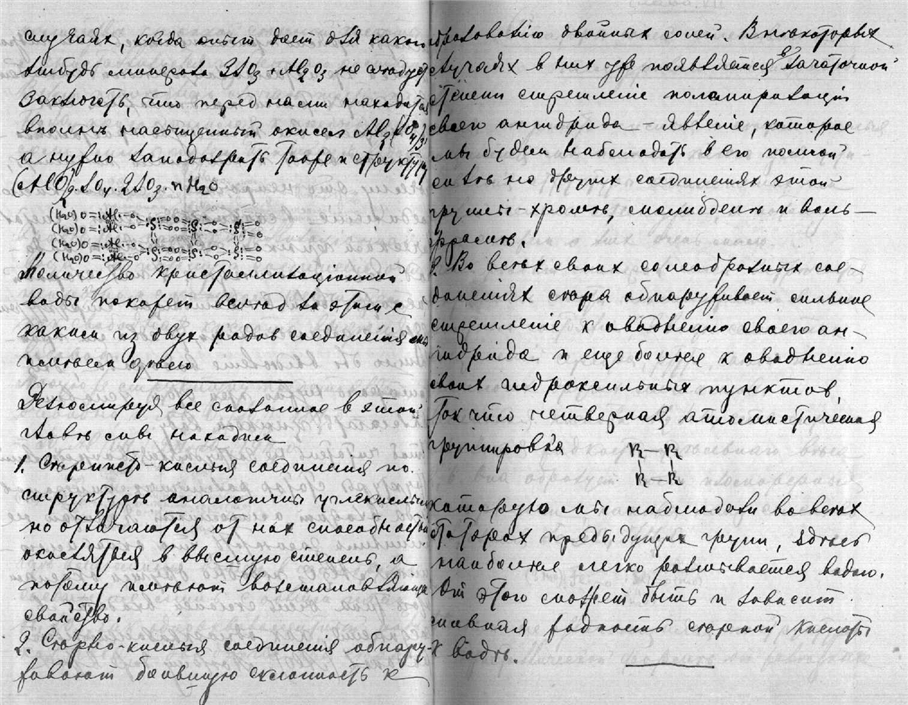 случаях, когда опыт дает для какого
нибудь минерала 2SO₃ + Al₂O₃ не следует
заключать, что перед нами находится
вполнѣ насыщенный окисел
а нужно заподозрить тоже и структуру
(AlO)₂SO₄.2SO₃.nH₂O
Количество кристаллизаціонной
воды покажет всегда за этим с
каким из двух родов соединенія мы
имѣем дѣло
Резюмируя все сказанное в этой
главѣ мы находим
1. Сѣрнисто-кислыя соединенія по
структурѣ аналогичны углекислым
но отличаются от них способностью
окисляться в высшую степень, а
потому имѣют возстановляющія
свойство.
2. Сѣрно-кислыя соединенія обнару-
живают большую склонность к
образованію двойных солей. В нѣкоторых
случаях в них уже появляется в зачаточной
степени стремленіе полимеризаціи
своего ангидрида – явленіе, которое
мы будем наблюдать в его полной
силѣ на других соединеніях этой
группы – хромѣ, молибденѣ и воль-
фрамѣ.
3. Во всѣх своих солеобразных сое-
диненіях сѣра обнаруживает сильное
стремленіе к оводненію своего ан-
гидрида и еще болѣе к оводненію
своих гидроксильных пунктов,
так что четверная атомистическая
группировка
R – R
R – R
которую мы наблюдали во всѣх
предыдущих групп, здѣсь
наиболѣе легко размывается водою.
От этого может быть и зависит
жадность сѣрной кислоты
к водѣ.